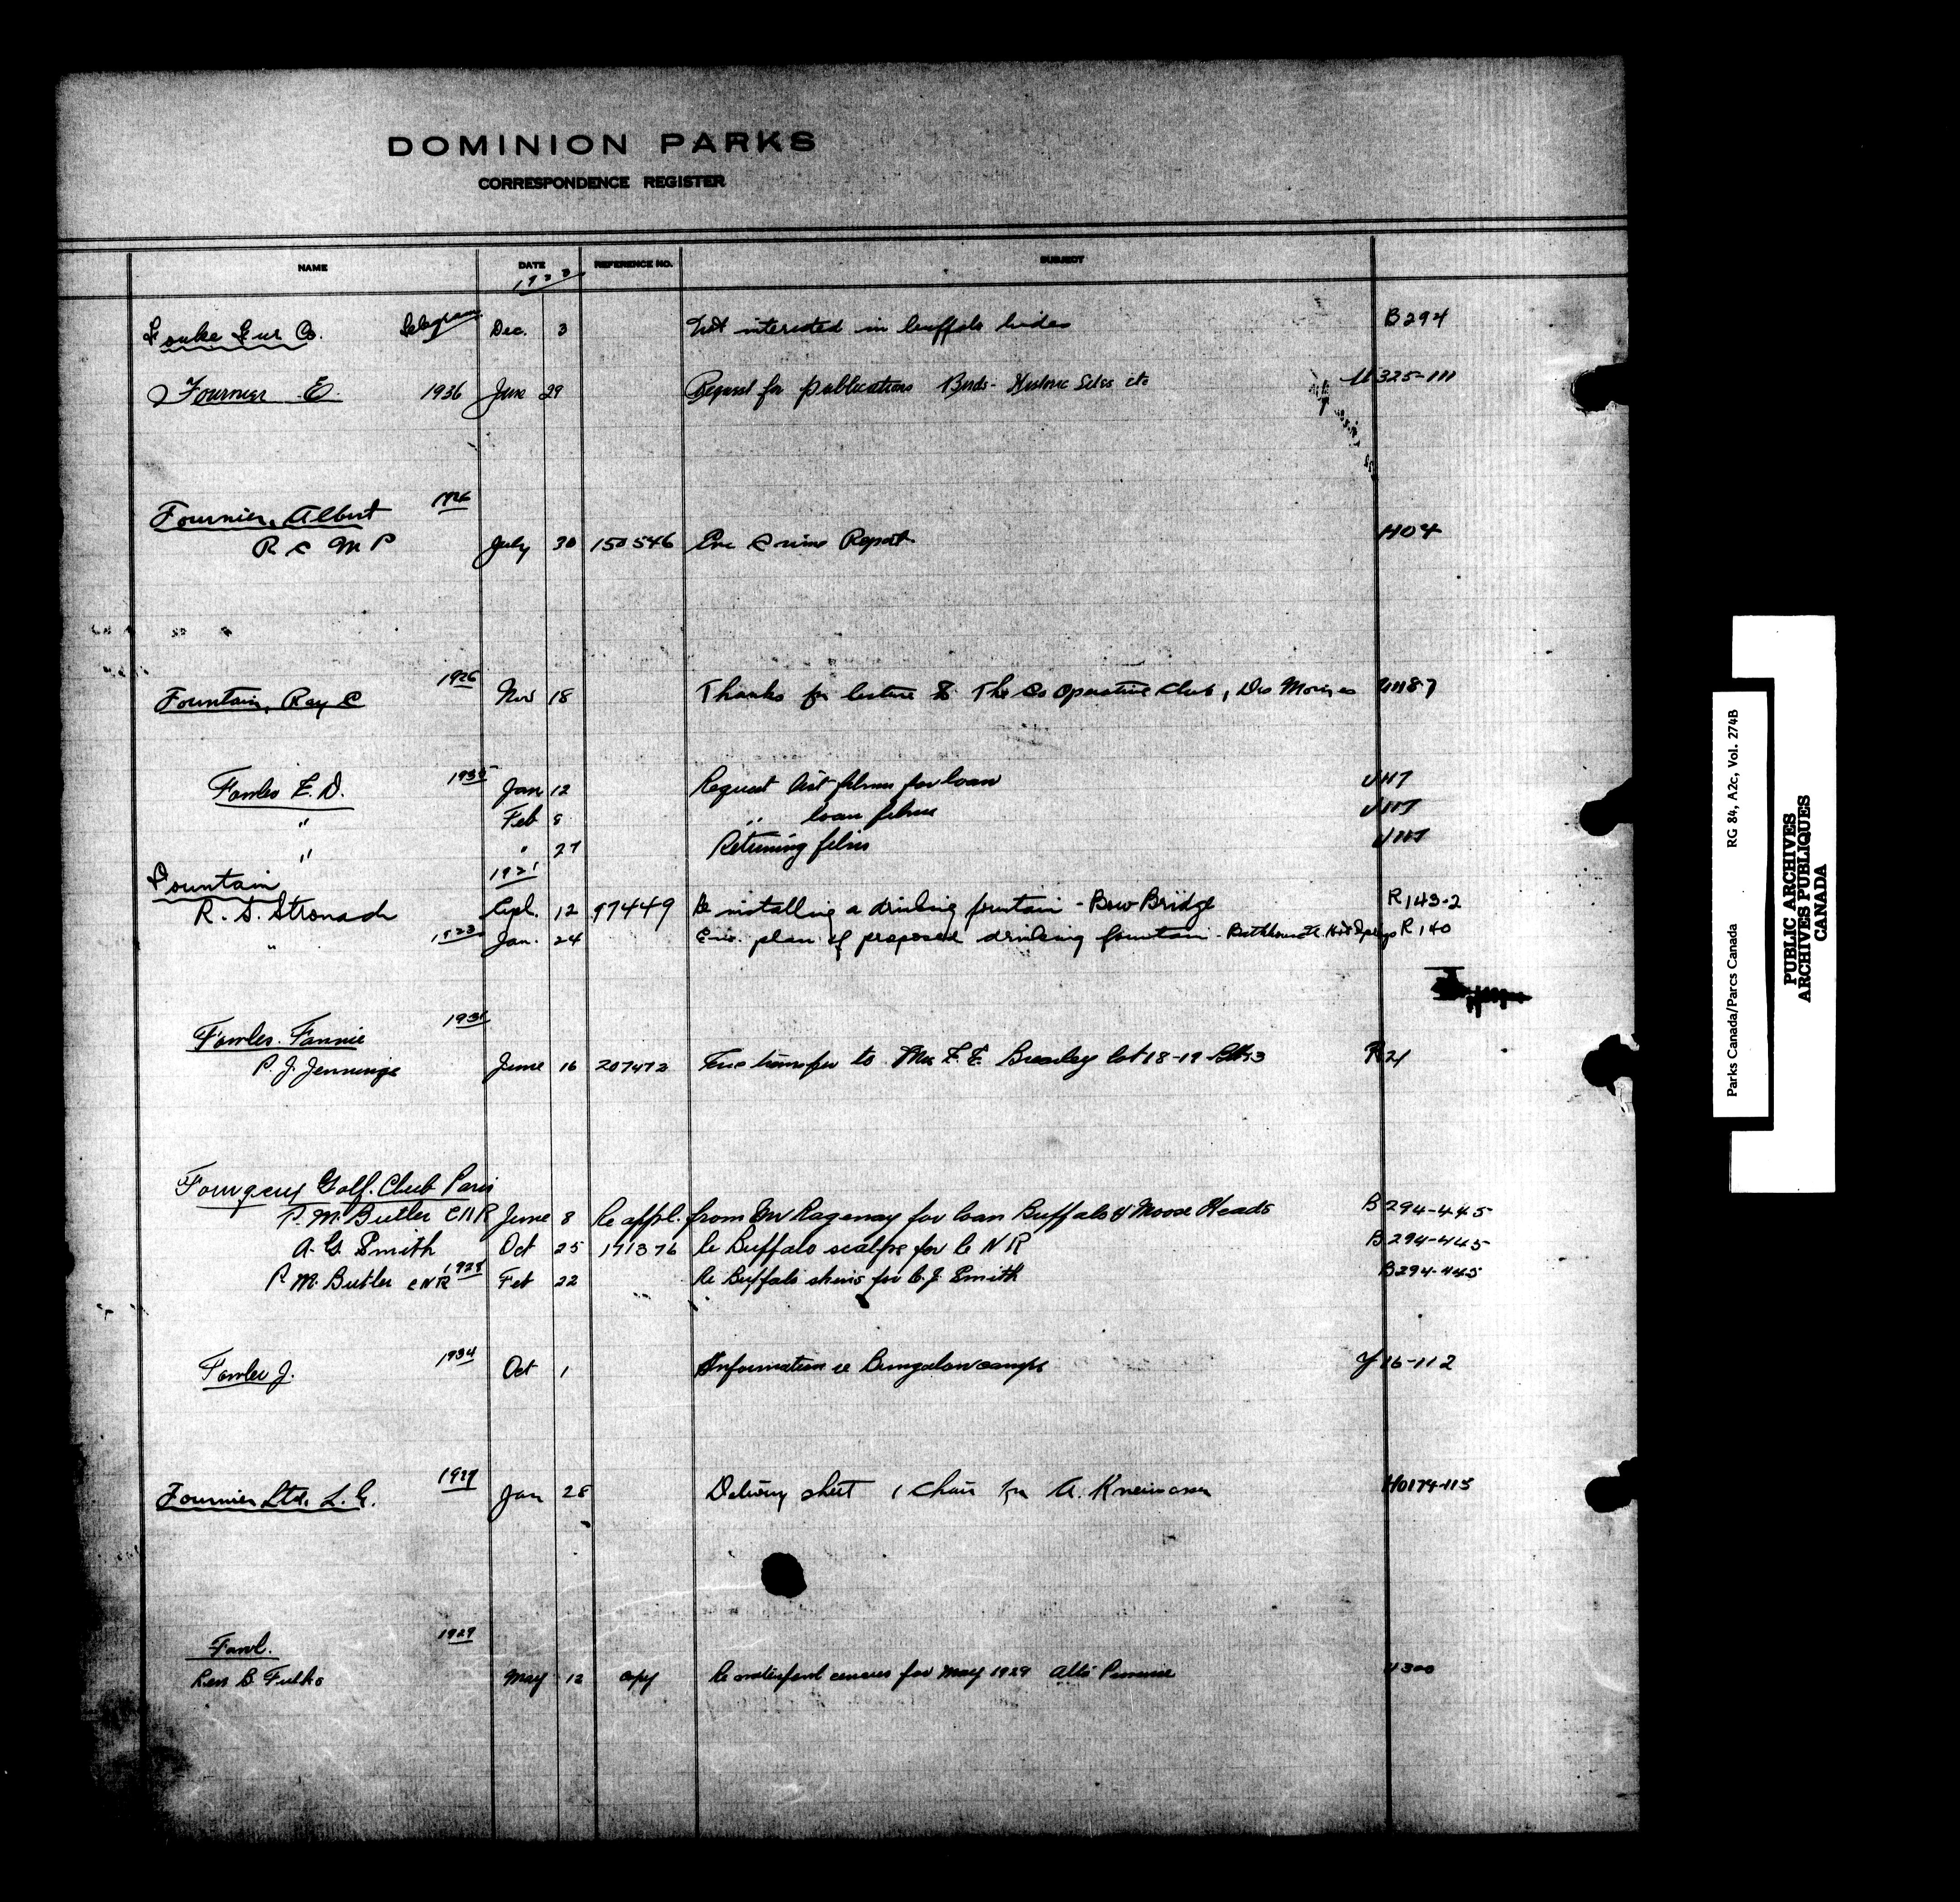 DOMINION PARKS
CORRESPONDENCE REGISTER
NAME DATE REFERENCE NO. SUBJECT
Fouke Fur Co. Telegram Dec. 3 Not interested in buffalo hides B294
Fournier E. 1936 June 29 Request for publications Birds - Historic Sites etc U325-111
Fournier, Albert 1926
R C M P July 30 150546 Crime Report H04
Fountain, Ray C 1926 Nov 18 Thanks for lecture to The Co Operative Club, Des Moines U1187
Fowles E. D. 1935 Jan 12 Request list films for loan U117
" Feb 8 " loan films U117
" " 27 Returning films U117
Fountain 1921
R. S. Stronach Sept. 12 97449 Re installing a drinking fountain - Bow Bridge R143-2
" 1923 Jan. 24 Enc. plan of proposed drinking fountain - Bathhouse Hot Springs R140
Fowles. Fannie 1931
P. J. Jennings June 16 207472 transfer to Mrs F. E. lot 18-19 Blk 3 R21
Golf. Club Paris
P. M. Butler CNR June 8 Re appl. from Mr Ragenay for loan Buffalo & Moose Heads B294-445
A. G. Smith Oct 25 171376 Re Buffalo scalps for C N R B294-445
P. M. Butler CNR 1928 Feb 22 Re Buffalo skins for C. J. Smith B294-445
Fowler J. 1934 Oct 1 Information re Bungalow camps Y16-112
Fournier Ltd. L. G. 1927 Jan 28 Delivery sheet 1 chair for A. H0174-113
Fowl. 1929
May 12 copy Re waterfowl census for May 1929 300
Parks Canada/Parcs Canada RG 84, A2c, Vol. 274B
PUBLIC ARCHIVES
ARCHIVES PUBLIQUES
CANADA